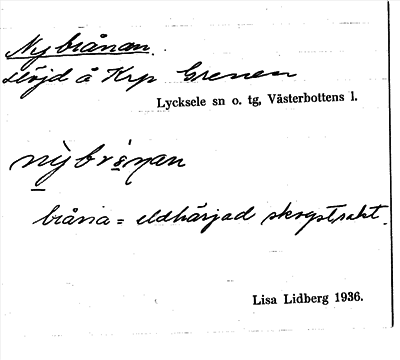 Nybrånan.
slöjd å Krp Grenen
Lycksele sn o. tg, Västerbottens l.
nỳbrånan
bråna = eldhärjad skogstrakt.
Lisa Lidberg 1936.